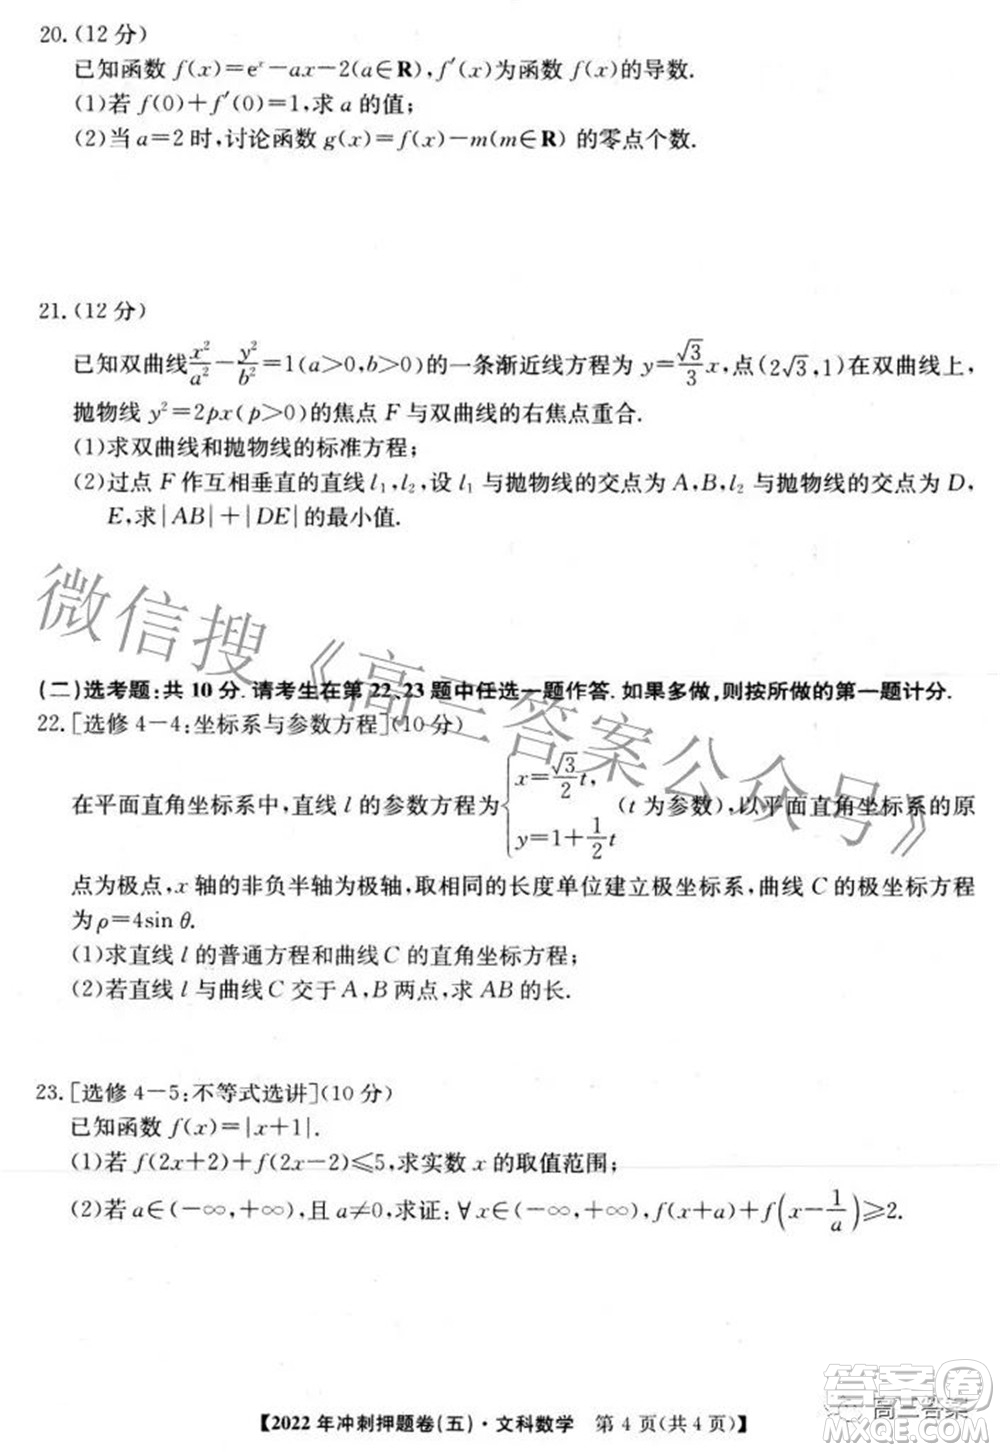 20.(12 分)
已知函数 f(x)=eˣ-ax-2(a∈R),f′(x)为函数 f(x)的导数.
(1)若 f(0)+f′(0)=1,求 a 的值;
(2)当 a=2 时,讨论函数 g(x)=f(x)-m(m∈R) 的零点个数.
21.(12 分)
已知双曲线x²/a²-y²/b²=1(a>0,b>0)的一条渐近线方程为 y=√3/3 x,点(2√3,1)在双曲线上,
抛物线 y²=2px(p>0)的焦点 F 与双曲线的右焦点重合.
(1)求双曲线和抛物线的标准方程;
(2)过点 F 作互相垂直的直线 l₁,l₂,设 l₁ 与抛物线的交点为 A,B,l₂ 与抛物线的交点为 D,
E,求|AB|+|DE|的最小值.
微信搜《高三答案公众号》
(二)选考题:共 10 分.请考生在第 22、23 题中任选一题作答.如果多做,则按所做的第一题计分.
22.[选修 4-4:坐标系与参数方程](10 分)
在平面直角坐标系中,直线 l 的参数方程为{x=√3/2 t, y=1+1/2 t (t 为参数),以平面直角坐标系的原
点为极点,x 轴的非负半轴为极轴,取相同的长度单位建立极坐标系,曲线 C 的极坐标方程
为ρ=4sin θ.
(1)求直线 l 的普通方程和曲线 C 的直角坐标方程;
(2)若直线 l 与曲线 C 交于 A,B 两点,求 AB 的长.
23.[选修 4-5:不等式选讲](10 分)
已知函数 f(x)=|x+1|.
(1)若 f(2x+2)+f(2x-2)≤5,求实数 x 的取值范围;
(2)若 a∈(-∞,+∞),且 a≠0,求证:∀x∈(-∞,+∞),f(x+a)+f(x-1/a)≥2.
【2022 年冲刺押题卷(五)·文科数学 第 4 页(共 4 页)】
答案圈
高三答案
MXQE.COM